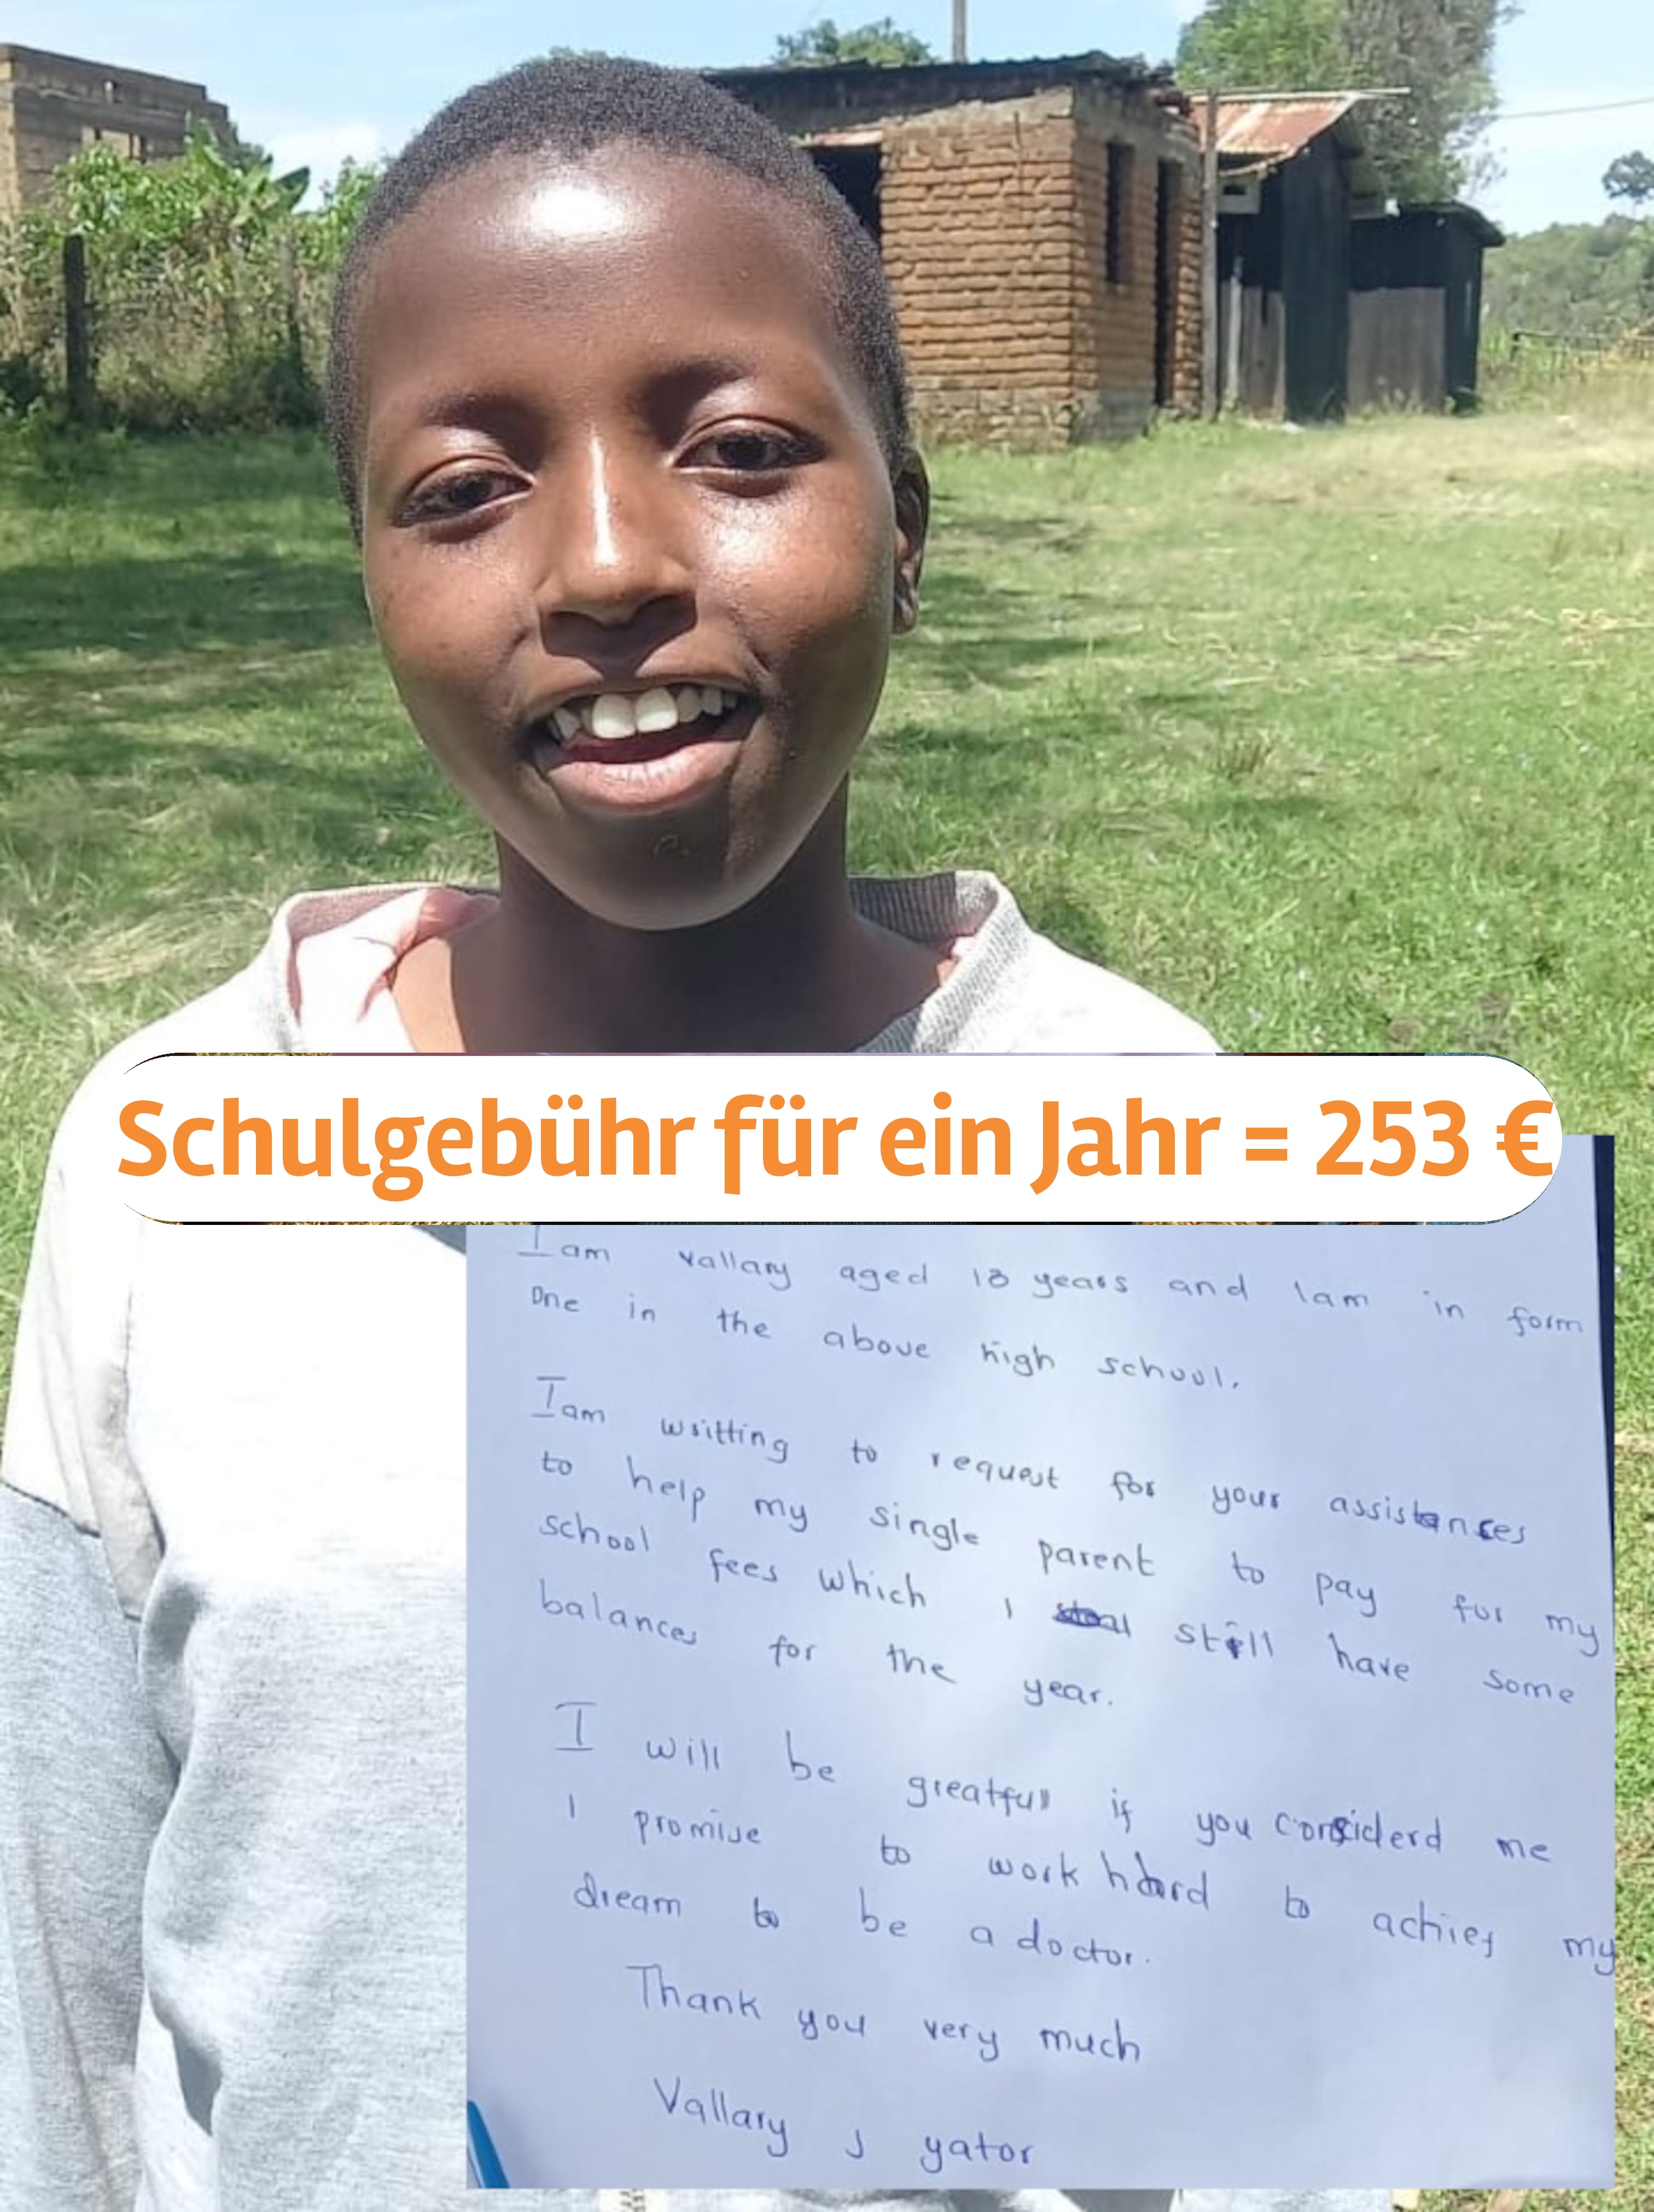 Schulgebühr für ein Jahr = 253 €
I am Vallary aged 18 years and Iam in form
One in the above high school.
Iam writting to request for your assistances
to help my single parent to pay for my
school fees which I still have some
balances for the year.
I will be greatfull if you considerd me
I promise to work hard to achief my
dream to be a doctor.
Thank you very much
Vallary J yator